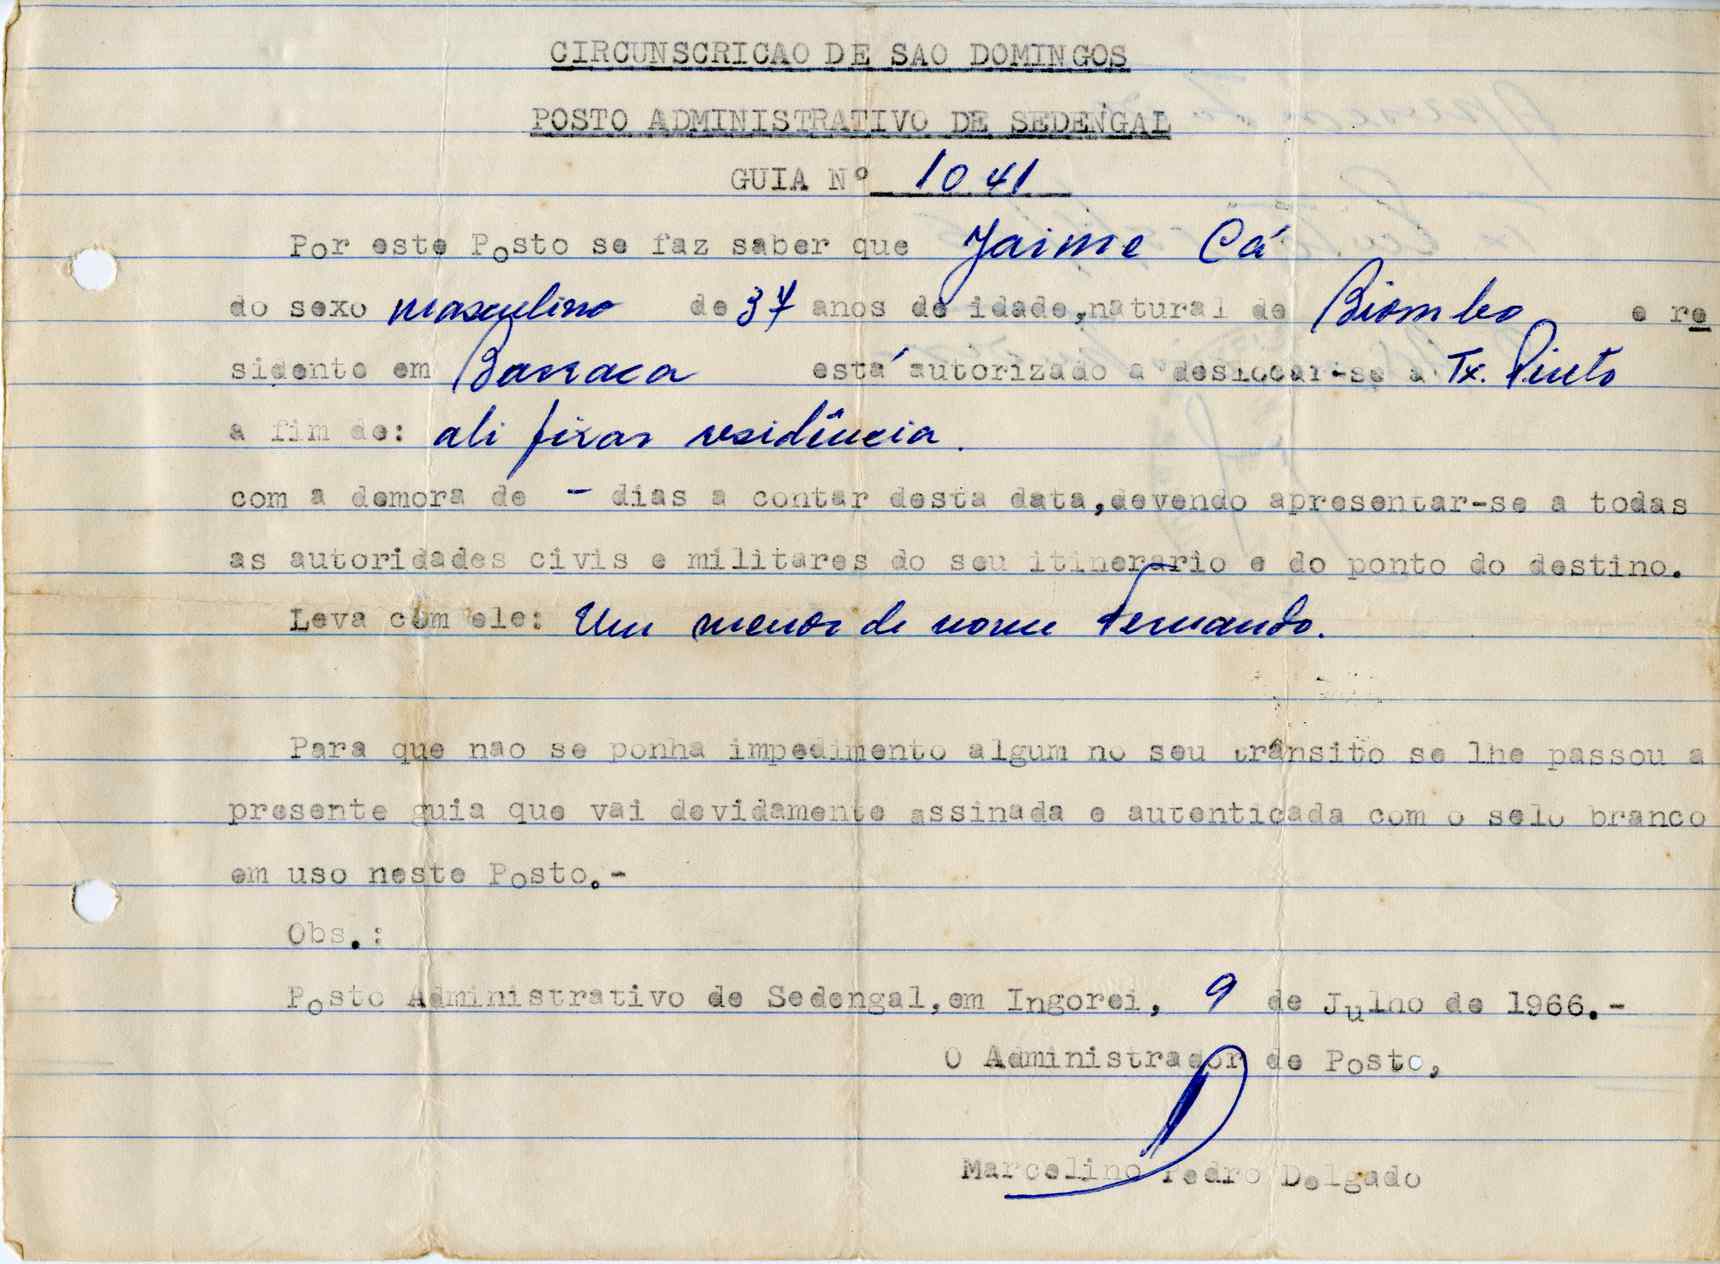 CIRCUNSCRICAO DE SAO DOMINGOS
POSTO ADMINISTRATIVO DE SEDENGAL
GUIA Nº 1041
Por este Posto se faz saber que Jaime Cá
do sexo masculino de 37 anos de idade,natural de Biombo e re
sidente em Barraca está autorizado a deslocar-se a Tx. Pinto
a fim de: ali fixar residência.
com a demora de - dias a contar desta data,devendo apresentar-se a todas
as autoridades civis e militares do seu itinerario e do ponto do destino.
Leva com ele: Um menor de nome Fernando.
Para que nao se ponha impedimento algum no seu trânsito se lhe passou a
presente guia que vai devidamente assinada e autenticada com o selo branco
em uso neste Posto.-
Obs.:
Posto Administrativo de Sedengal,em Ingorei, 9 de Julho de 1966.-
O Administrador de Posto,
Marcelino Pedro Delgado